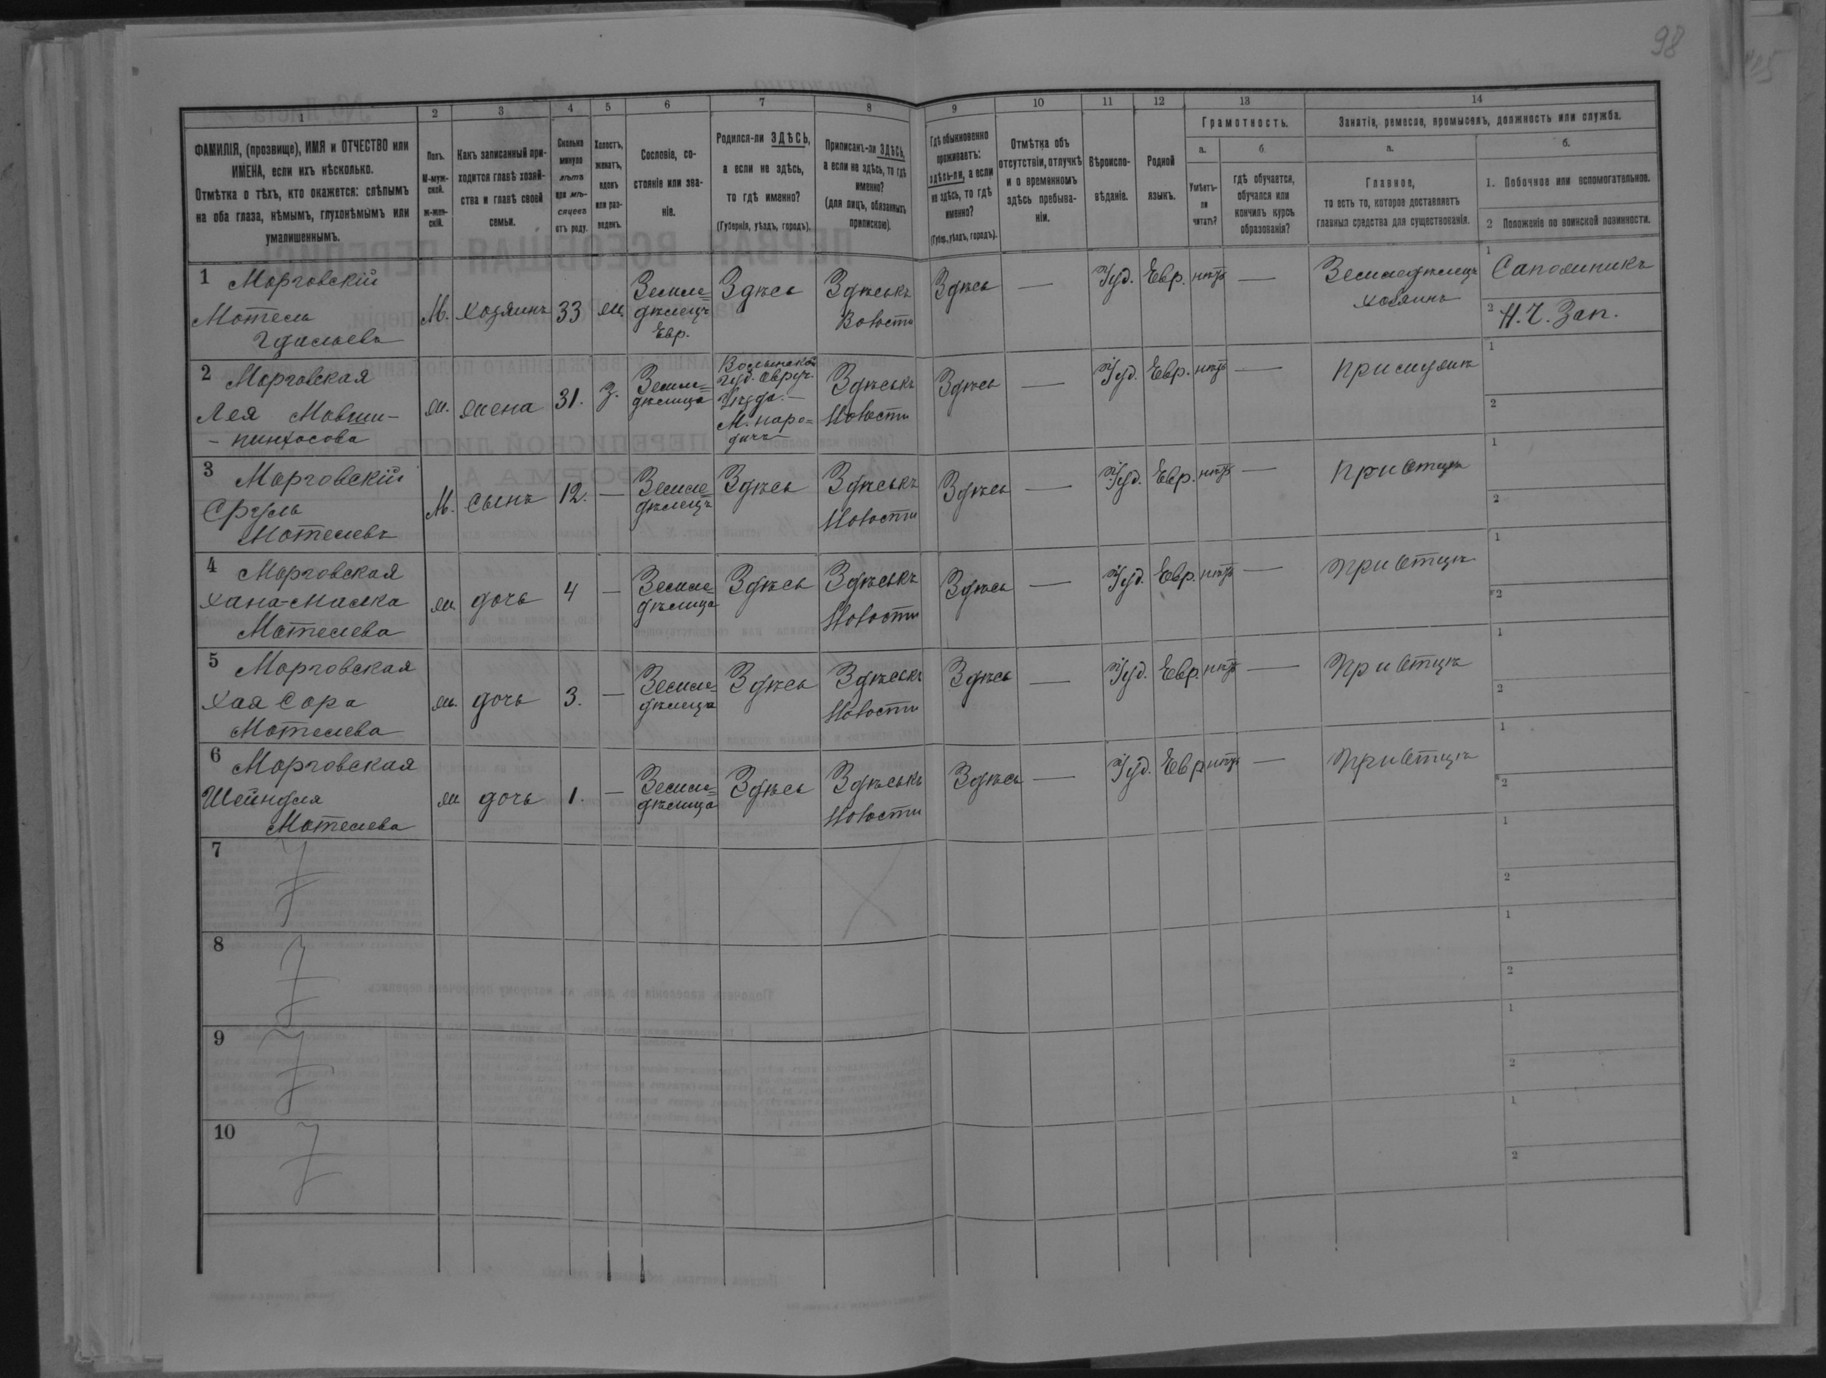 98
1 2 3 4 5 6 7 8 9 10 11 12 13 14
ФАМИЛІЯ, (прозвище), ИМЯ и ОТЧЕСТВО или
ИМЕНА, если ихъ нѣсколько.
Отмѣтка о тѣхъ, кто окажется: слѣпымъ
на оба глаза, нѣмымъ, глухонѣмымъ или
умалишеннымъ.
Полъ.
М-муж-
ской.
ж-жен-
скій.
Какъ записанный при-
ходится главѣ хозяй-
ства и главѣ своей
семьи.
Сколько
минуло
лѣтъ
или мѣ-
сяцевъ
отъ роду.
Холостъ,
женатъ,
вдовъ
или раз-
веденъ.
Сословіе, со-
стояніе или зва-
ніе.
Родился-ли ЗДѢСЬ,
а если не здѣсь,
то гдѣ именно?
(Губернія, уѣздъ, городъ).
Приписанъ-ли ЗДѢСЬ,
а если не здѣсь, то гдѣ
именно?
(для лицъ, обязанныхъ
припискою).
Гдѣ обыкновенно
проживаетъ:
здѣсь-ли, а если
не здѣсь, то гдѣ
именно?
(Губер., уѣздъ, городъ).
Отмѣтка объ
отсутствіи, отлучкѣ
и о временномъ
здѣсь пребыва-
ніи.
Вѣроиспо-
вѣданіе.
Родной
языкъ.
Грамотность.
а.
Умѣетъ-
ли
читать?
б.
гдѣ обучается,
обучался или
кончилъ курсъ
образованія?
Занятіе, ремесло, промыселъ, должность или служба.
а.
Главное,
то есть то, которое доставляетъ
главныя средства для существованія.
б.
1. Побочное или вспомогательное.
2 Положеніе по воинской повинности.
1 Морговскій
Мотель
Гдальевъ
М. хозяинъ 33 ж.
Земле=
дѣлецъ
Евр.
Здѣсь
Здѣськъ
Волости
Здѣсь — Іуд. Евр. нѣтъ —
Земледѣлецъ
хозяинъ
1 Сапожникъ
2 Н. Ч. Зап.
2 Морговская
Лея Мовши-
-пинхосова
ж. жена 31. З.
Земле=
дѣлица
Волынской
губ. Овруч.
Уѣзда.
М. наро=
дичь
Здѣськъ
Волости
Здѣсь — Іуд. Евр. нѣтъ —
при мужѣ
1
2
3 Морговскій
Сруль
Мотелевъ
М. сынъ 12. —
Земле=
дѣлецъ
Здѣсь
Здѣськъ
Волости
Здѣсь — Іуд. Евр. нѣтъ —
при отцѣ
1
2
4 Морговская
Хана-Малка
Мотелева
ж. дочь 4 —
Земле
дѣлица
Здѣсь
Здѣськъ
Волости
Здѣсь — Іуд. Евр. нѣтъ —
при отцѣ
1
2
5 Морговская
Хая Сора
Мотелева
ж. дочь 3. —
Земле-
дѣлица
Здѣсь
Здѣськъ
Волости
Здѣсь — Іуд. Евр. нѣтъ —
при отцѣ
1
2
6 Морговская
Шейндля
Мотелева
ж дочь 1. —
Земле=
дѣлица
Здѣсь
Здѣськъ
Волости
Здѣсь — Іуд. Евр. нѣтъ —
при отцѣ
1
2
7
1
2
8
1
2
9
1
2
10
1
2